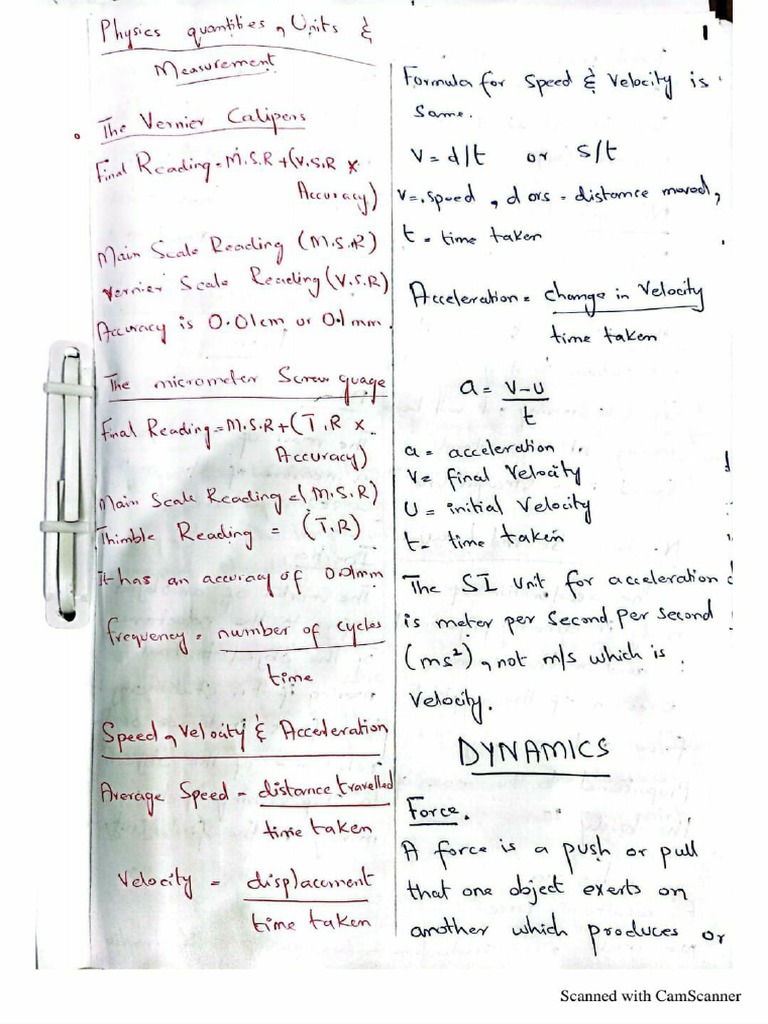 Physics quantities, Units &
Measurement
The Vernier Calipers
Final Reading = M.S.R + (V.S.R x
Accuracy)
Main Scale Reading (M.S.R)
Vernier Scale Reading (V.S.R)
Accuracy is 0.01cm or 0.1mm.
The micrometer Screw guage
Final Reading = M.S.R + (T.R x
Accuracy)
Main Scale Reading = (M.S.R)
Thimble Reading = (T.R)
It has an accuracy of 0.01mm
frequency = number of cycles
time
Speed, Velocity & Acceleration
Average Speed = distance travelled
time taken
Velocity = displacement
time taken
1
Formula for Speed & Velocity is
Same.
V = d/t or s/t
v = speed, d or s = distance moved,
t = time taken
Acceleration = change in Velocity
time taken
a = V-U
t
a = acceleration
V = final Velocity
U = initial Velocity
t = time taken
The SI Unit for acceleration
is meter per Second per second
(ms²), not m/s which is
Velocity.
DYNAMICS
Force.
A force is a push or pull
that one object exerts on
another which produces or
Scanned with CamScanner